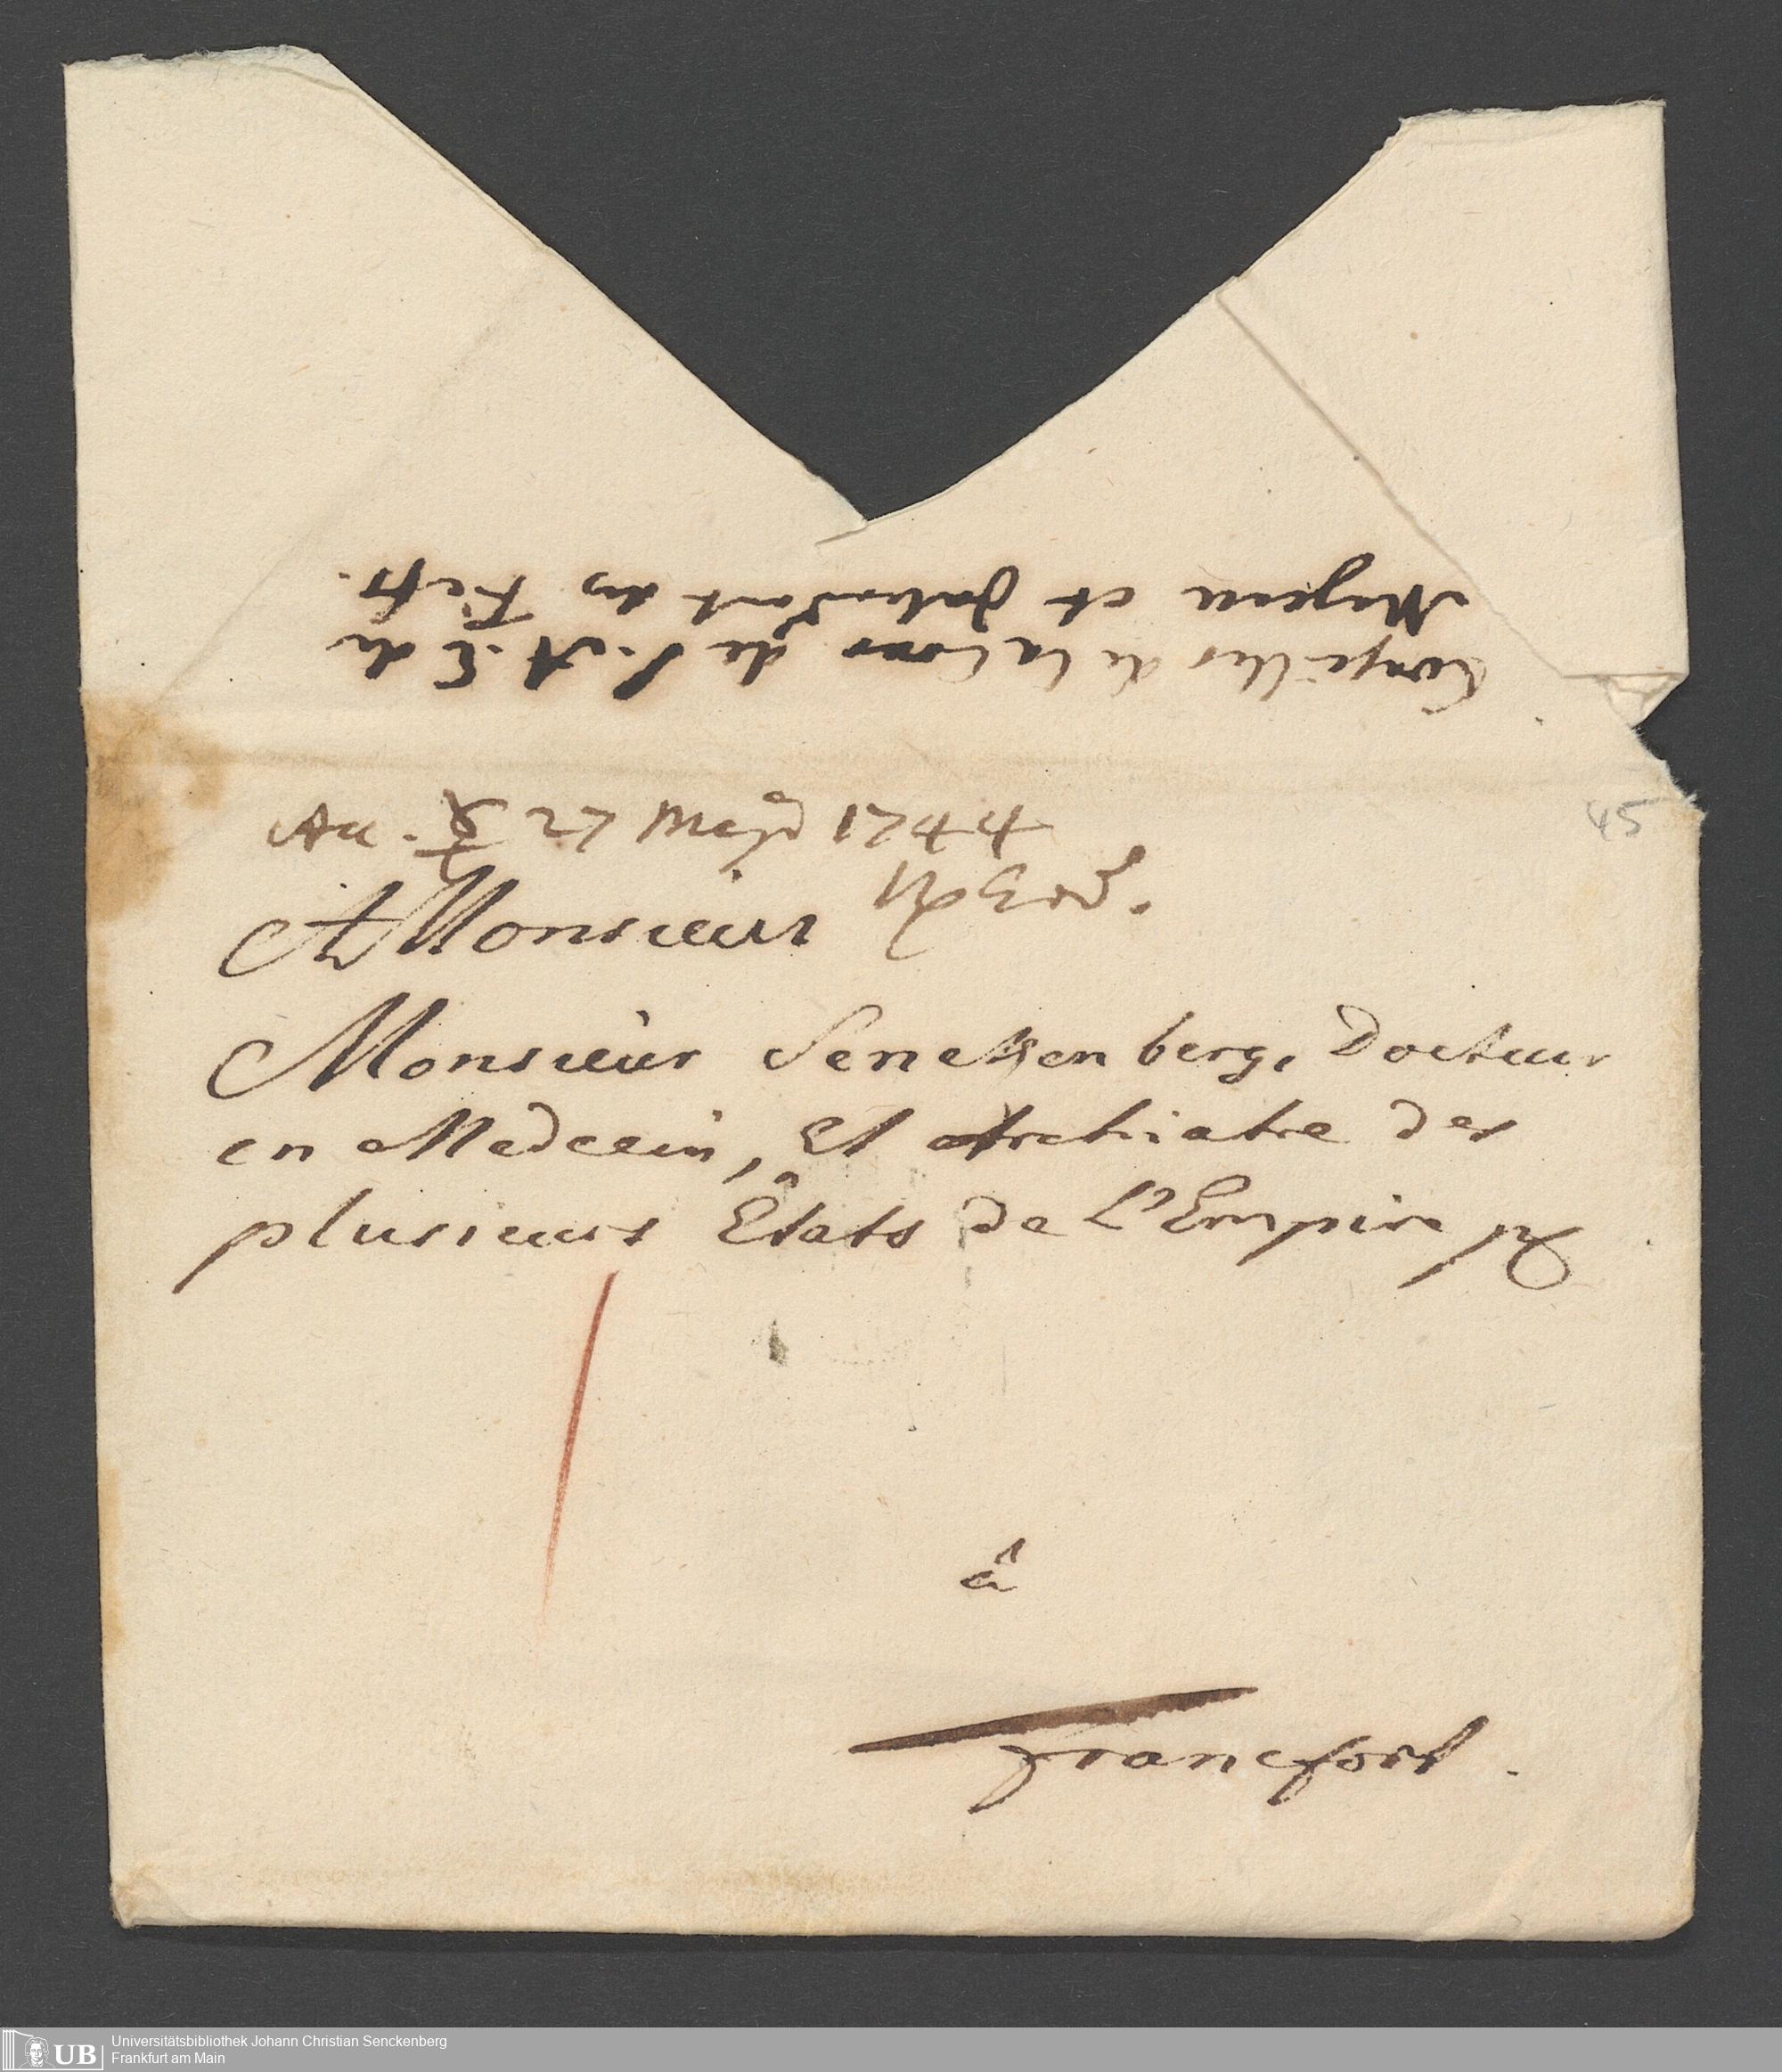 Conseiller de la Cour de S. A. E. de
Mayence et Intendant des Fiefs.
45
A Monsieur
Monsieur Senckenberg, Docteur
en Medecin, Et Archiatre des
plusieurs Etats de L'Empire
â
Francfort.
UB
Universitätsbibliothek Johann Christian Senckenberg
Frankfurt am Main